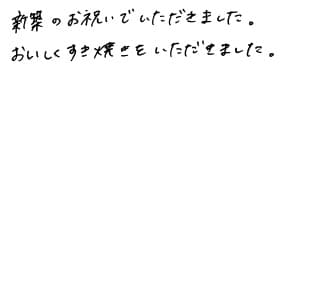 新築のお祝いでいただきました。
おいしくすき焼きをいただきました。